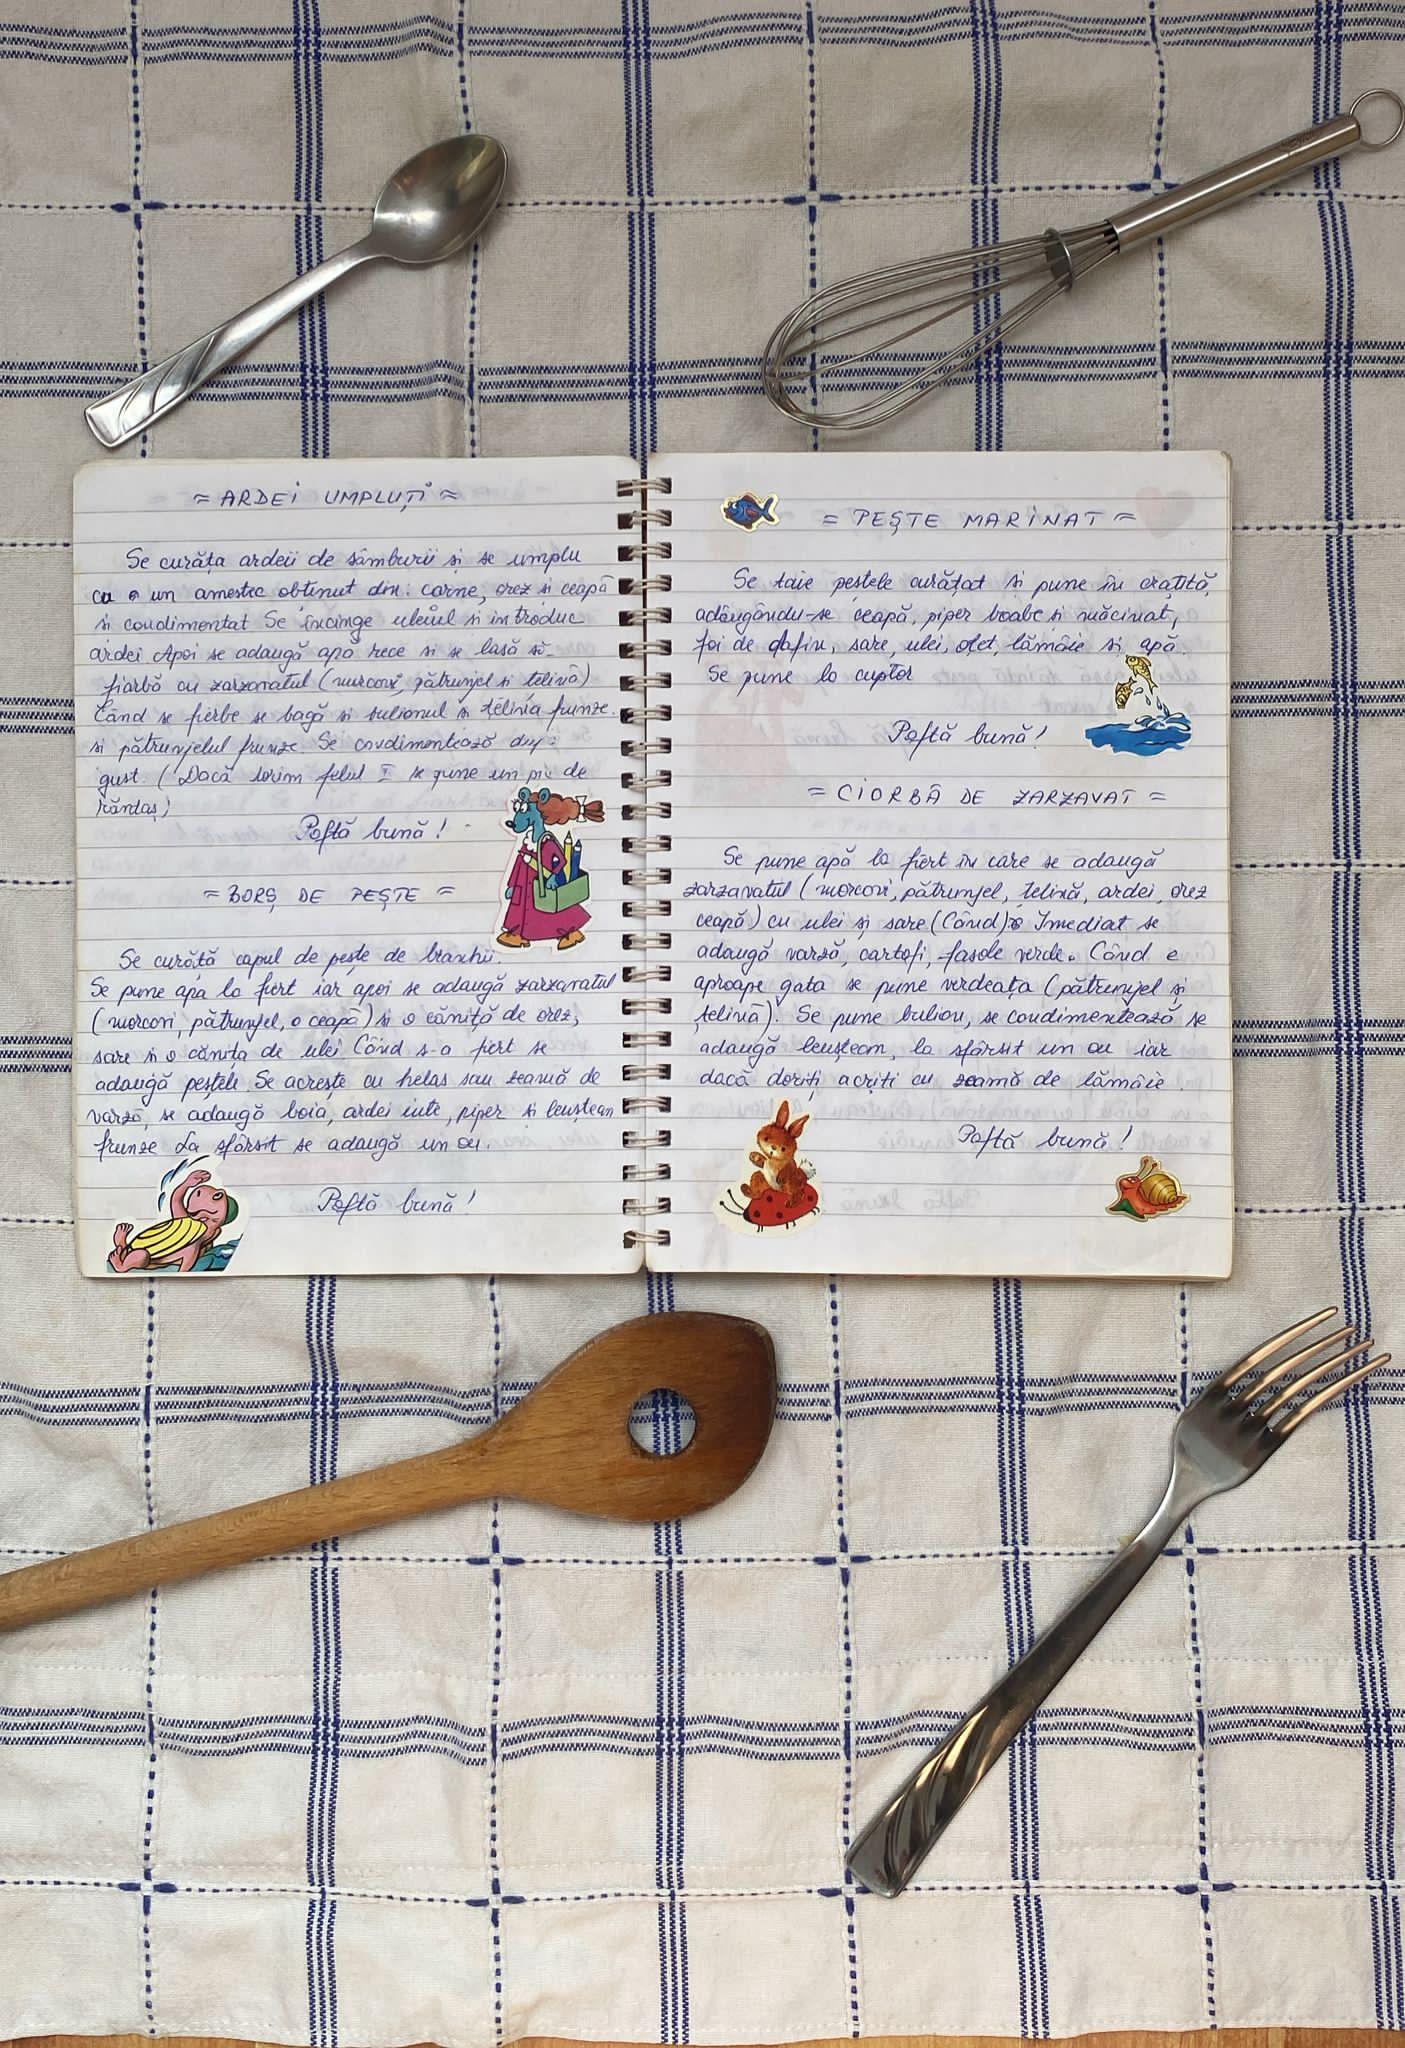 ≈ ARDEI UMPLUȚI ≈
Se curăța ardeii de sâmburii și se umplu
cu un amestec obtinut din: carne, orez si ceapă
si condimentat Se încinge uleiul si introduc
ardei Apoi se adaugă apa rece si se lasă să-
fiarbă cu zarzavatul (morcovi, pătrunjel si telină)
Când se fierbe se bagă si bulionul si țelina frunze.
si pătrunjelul frunze Se condimentează dup:
gust. (Dacă dorim felul I se pune un pic de
rântaș)
Poftă bună!
= BORȘ DE PEȘTE =
Se curăță capul de pește de branhii.
Se pune apa la fiert iar apoi se adaugă zarzavatul
(morcovi, pătrunjel, o ceapă) si o căniță de orez,
sare si o căniță de ulei Când s-a fiert se
adaugă peștele. Se acrește cu helas sau zeamă de
varză, se adaugă boia, ardei iute, piper și leuștean
frunze La sfârsit se adaugă un ou.
Poftă bună!
= PEȘTE MARINAT =
Se taie peștele curățat și pune în cratiță,
adăugându-se ceapă, piper boabe si măcinat,
foi de dafin, sare, ulei, oțet, lămâie și apă.
Se pune la cuptor
Poftă bună!
= CIORBĂ DE ZARZAVAT =
Se pune apă la fiert în care se adaugă
zarzavatul (morcovi, pătrunjel, țelină, ardei, orez
ceapă) cu ulei și sare (Când) Imediat se
adaugă varză, cartofi, fasole verde. Când e
aproape gata se pune verdeața (pătrunjel și
țelină). Se pune bulion, se condimentează se
adaugă leuștean, la sfârsit un ou iar
dacă doriți acriți cu zeamă de lămâie.
Poftă bună!